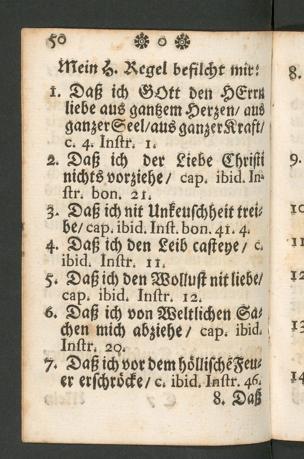 50 ❁ o ❁
Mein H. Regel befilcht mir:
1. Daß ich GOtt den HErrn
liebe aus gantzem Herzen/ aus
ganzer Seel/ aus ganzer Kraft/
c. 4. Instr. 1.
2. Daß ich der Liebe Christi
nichts vorziehe/ cap. ibid. In-
str. bon. 21.
3. Daß ich nit Unkeuschheit trei-
be/ cap. ibid. Inst. bon. 41. 4.
4. Daß ich den Leib casteye/ c.
ibid. Instr. 11.
5. Daß ich den Wollust nit liebe/
cap. ibid. Instr. 12.
6. Daß ich von Weltlichen Sa-
chen mich abziehe/ cap. ibid.
Instr. 20.
7. Daß ich vor dem höllischē Feu-
er erschröcke/ c. ibid. Instr. 46.
8. Daß
8.
9.
10
11
12
13
14